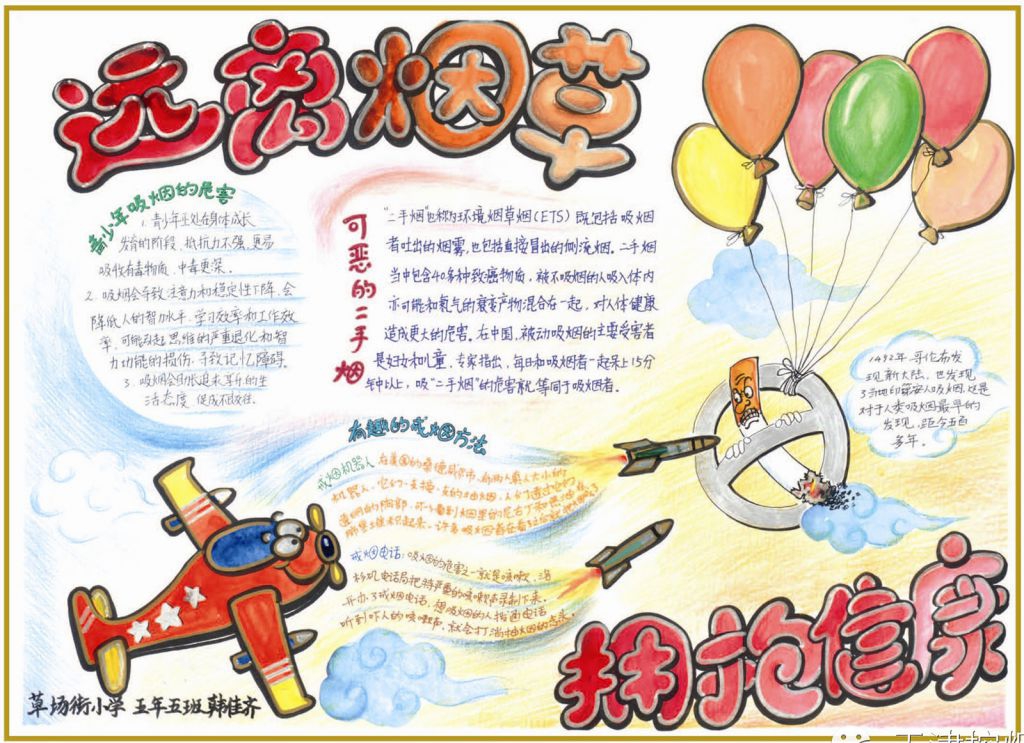 远离烟草
青少年吸烟的危害
1. 青少年正处在身体成长
发育的阶段、抵抗力不强、更易
吸收有毒物质、中毒更深.
2. 吸烟会导致注意力和稳定性下降、会
降低人的智力水平、学习效率和工作效
率. 可能引起思维的严重退化和智
力功能的损伤、导致记忆障碍.
3. 吸烟会助长追求享乐的生
活态度
可恶的二手烟
"二手烟"也称为环境烟草烟(ETS)既包括吸烟
者吐出的烟雾,也包括直接冒出的侧流烟. 二手烟
当中包含40多种致癌物质, 被不吸烟的人吸入体内
亦可能和氡气的衰变产物混合在一起, 对人体健康
造成更大的危害. 在中国, 被动吸烟的主要受害者
是妇女和儿童. 专家指出, 每日和吸烟者一起呆上15分
钟以上, 吸"二手烟"的危害就等同于吸烟者.
有趣的戒烟方法
戒烟机器人
在美国的桑德威尔市、有两人真人大小的
机器人、它们一支接一支的抽烟、人们透过它们
透明的胸部、
肺里土堆积起来、许多吸烟者在看过后就
戒烟电话: 吸烟的危害之一就是咳嗽、洛
杉矶电话局把特严重的咳嗽声录制下来.
开办了戒烟电话, 想吸烟的人拨通电话
听到吓人的咳嗽声, 就会打消抽烟的念头.
1492年哥伦布发
现新大陆、也发现
了当地印第安人吸烟. 这是
对于人类吸烟最早的
发现. 距今五百
多年.
拥抱健康
草场街小学 五年五班 韩佳齐